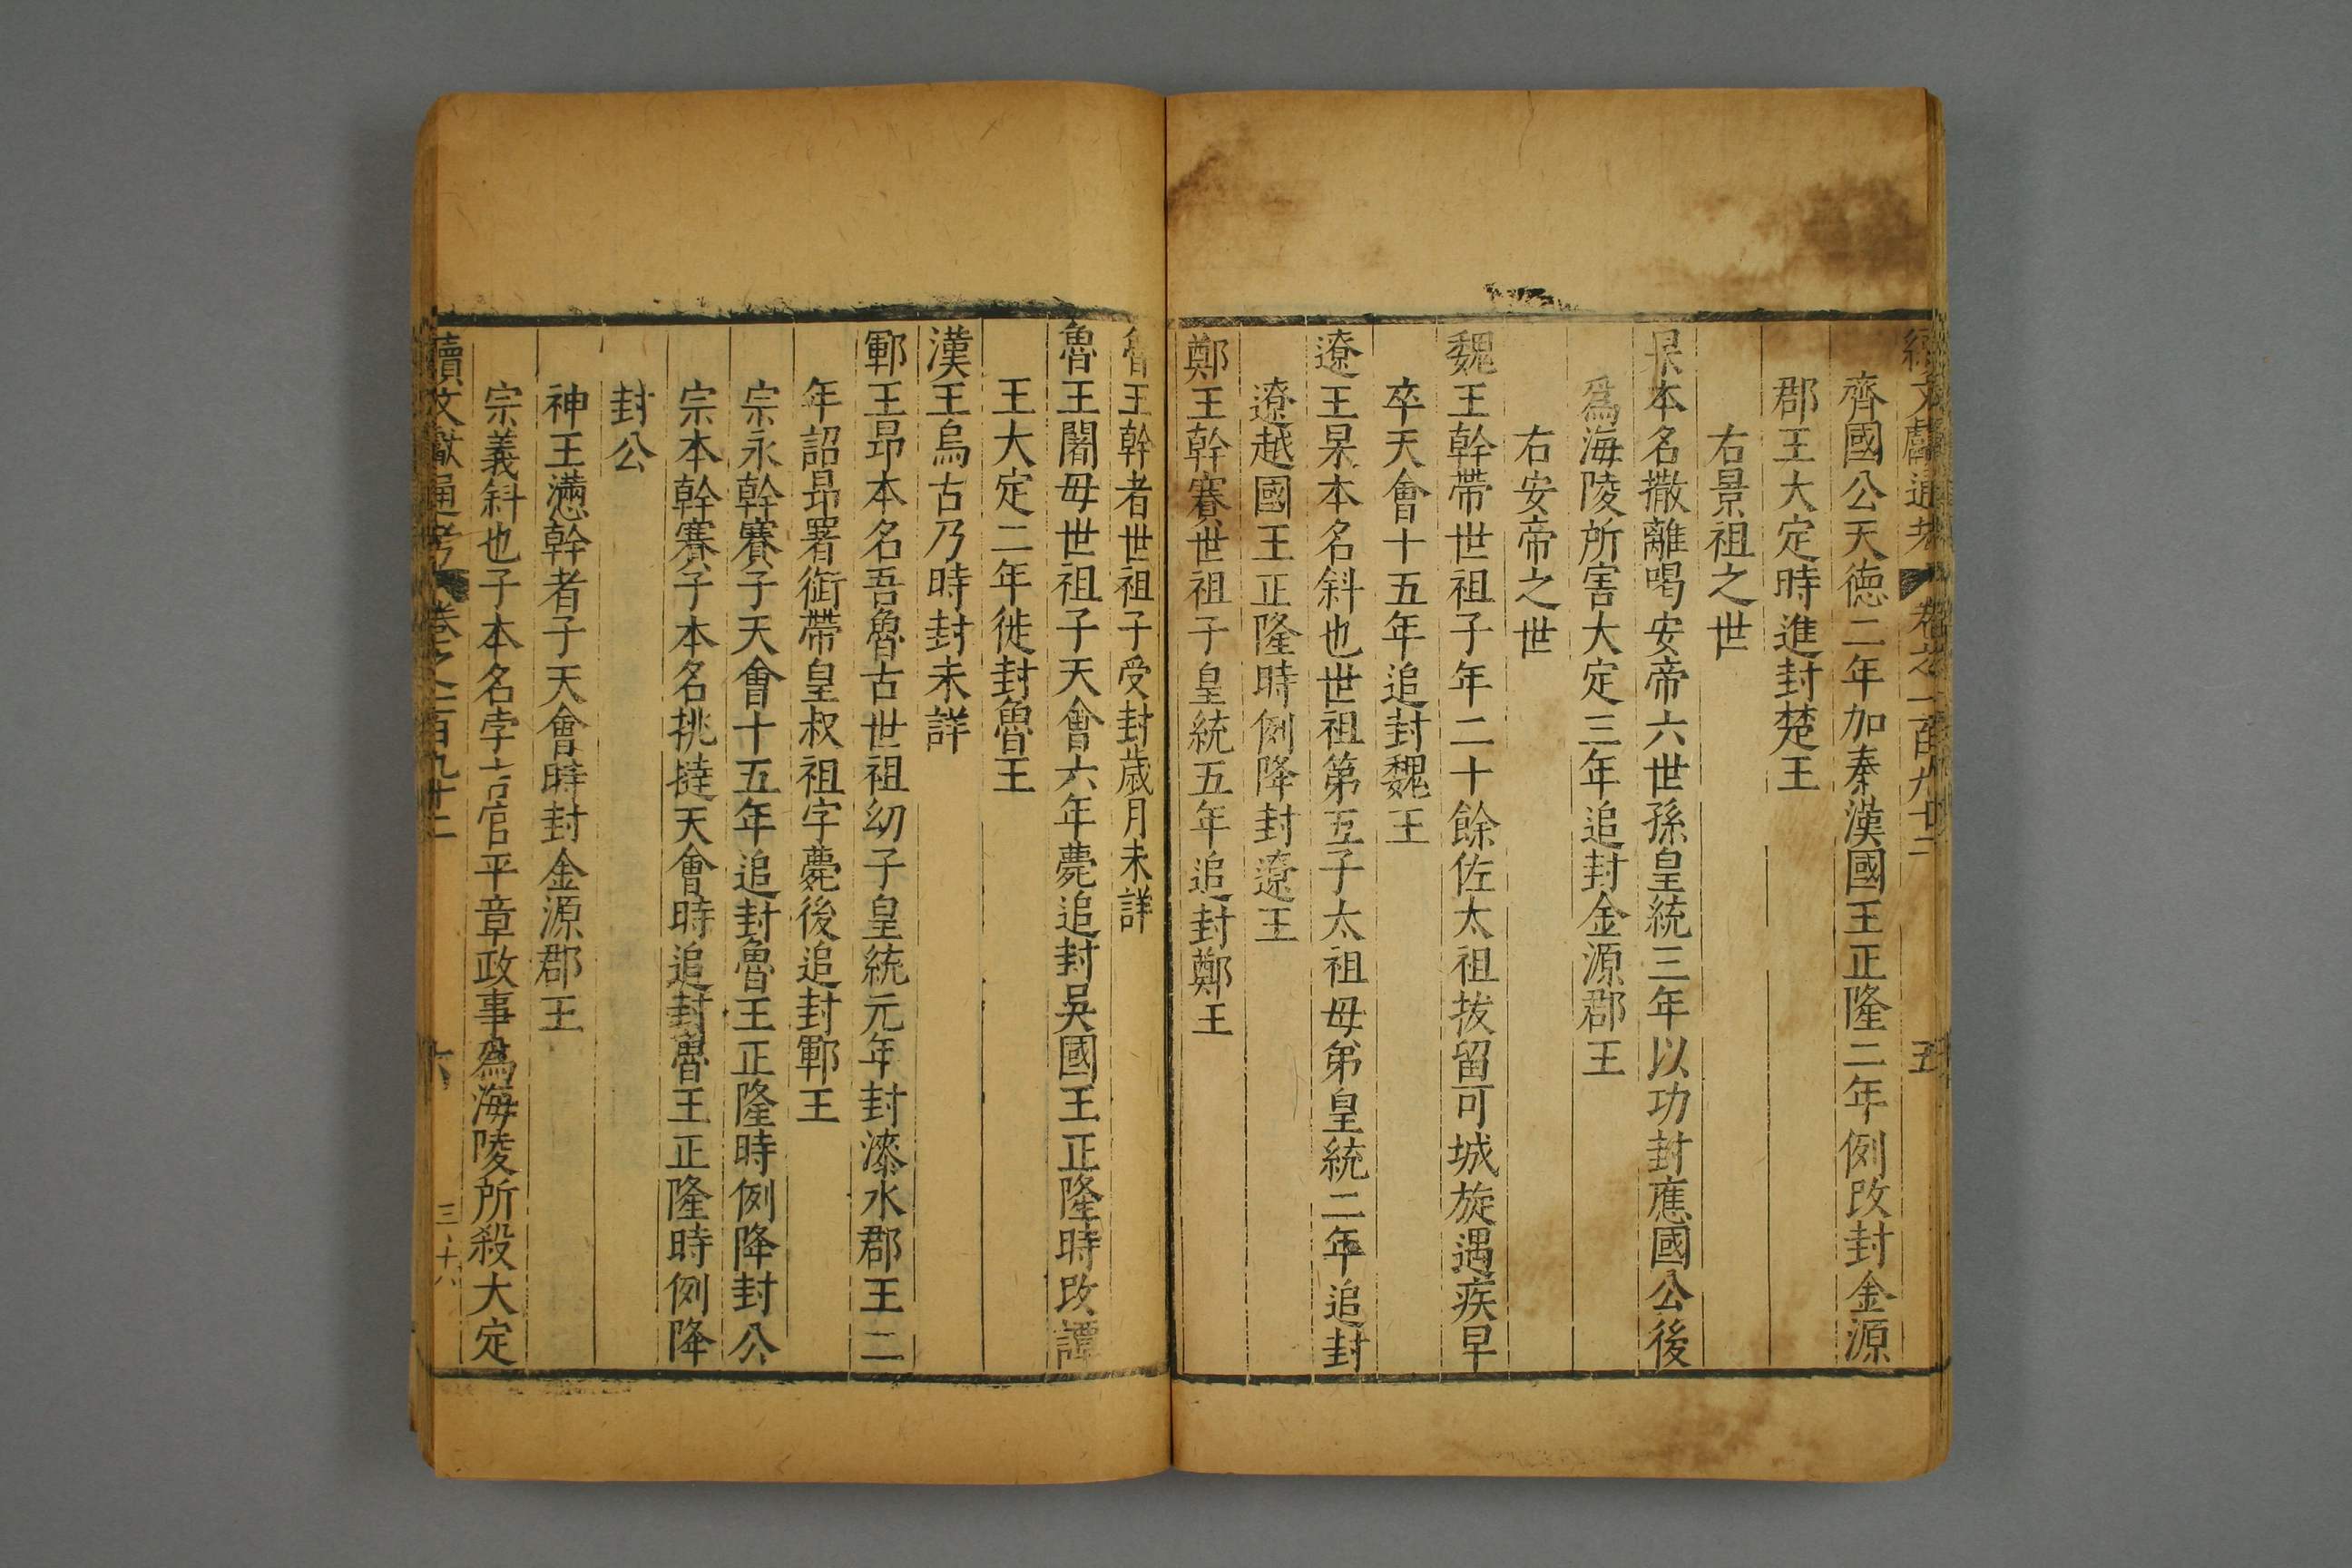 續文獻通考 卷之一百九十二 五
齊國公天德二年加秦漢國王正隆二年例改封金源
郡王大定時進封楚王
右景祖之世
杲本名撒離喝安帝六世孫皇統三年以功封應國公後
爲海陵所害大定三年追封金源郡王
右安帝之世
魏王幹帶世祖子年二十餘佐太祖拔留可城旋遇疾早
卒天會十五年追封魏王
遼王杲本名斜也世祖第五子太祖母弟皇統二年追封
遼越國王正隆時例降封遼王
鄭王幹賽世祖子皇統五年追封鄭王
魯王幹者世祖子受封歲月未詳
魯王闍母世祖子天會六年薨追封吳國王正隆時改譚
王大定二年徙封魯王
漢王烏古乃時封未詳
鄆王昂本名吾魯古世祖幼子皇統元年封漆水郡王二
年詔昂署銜帶皇叔祖字薨後追封鄆王
宗永幹賽子天會十五年追封魯王正隆時例降封公
宗本幹賽子本名挑撻天會時追封魯王正隆時例降
封公
神王懣幹者子天會時封金源郡王
宗義斜也子本名孛吉官平章政事爲海陵所殺大定
續文獻通考 卷之一百九十二 六 三十六